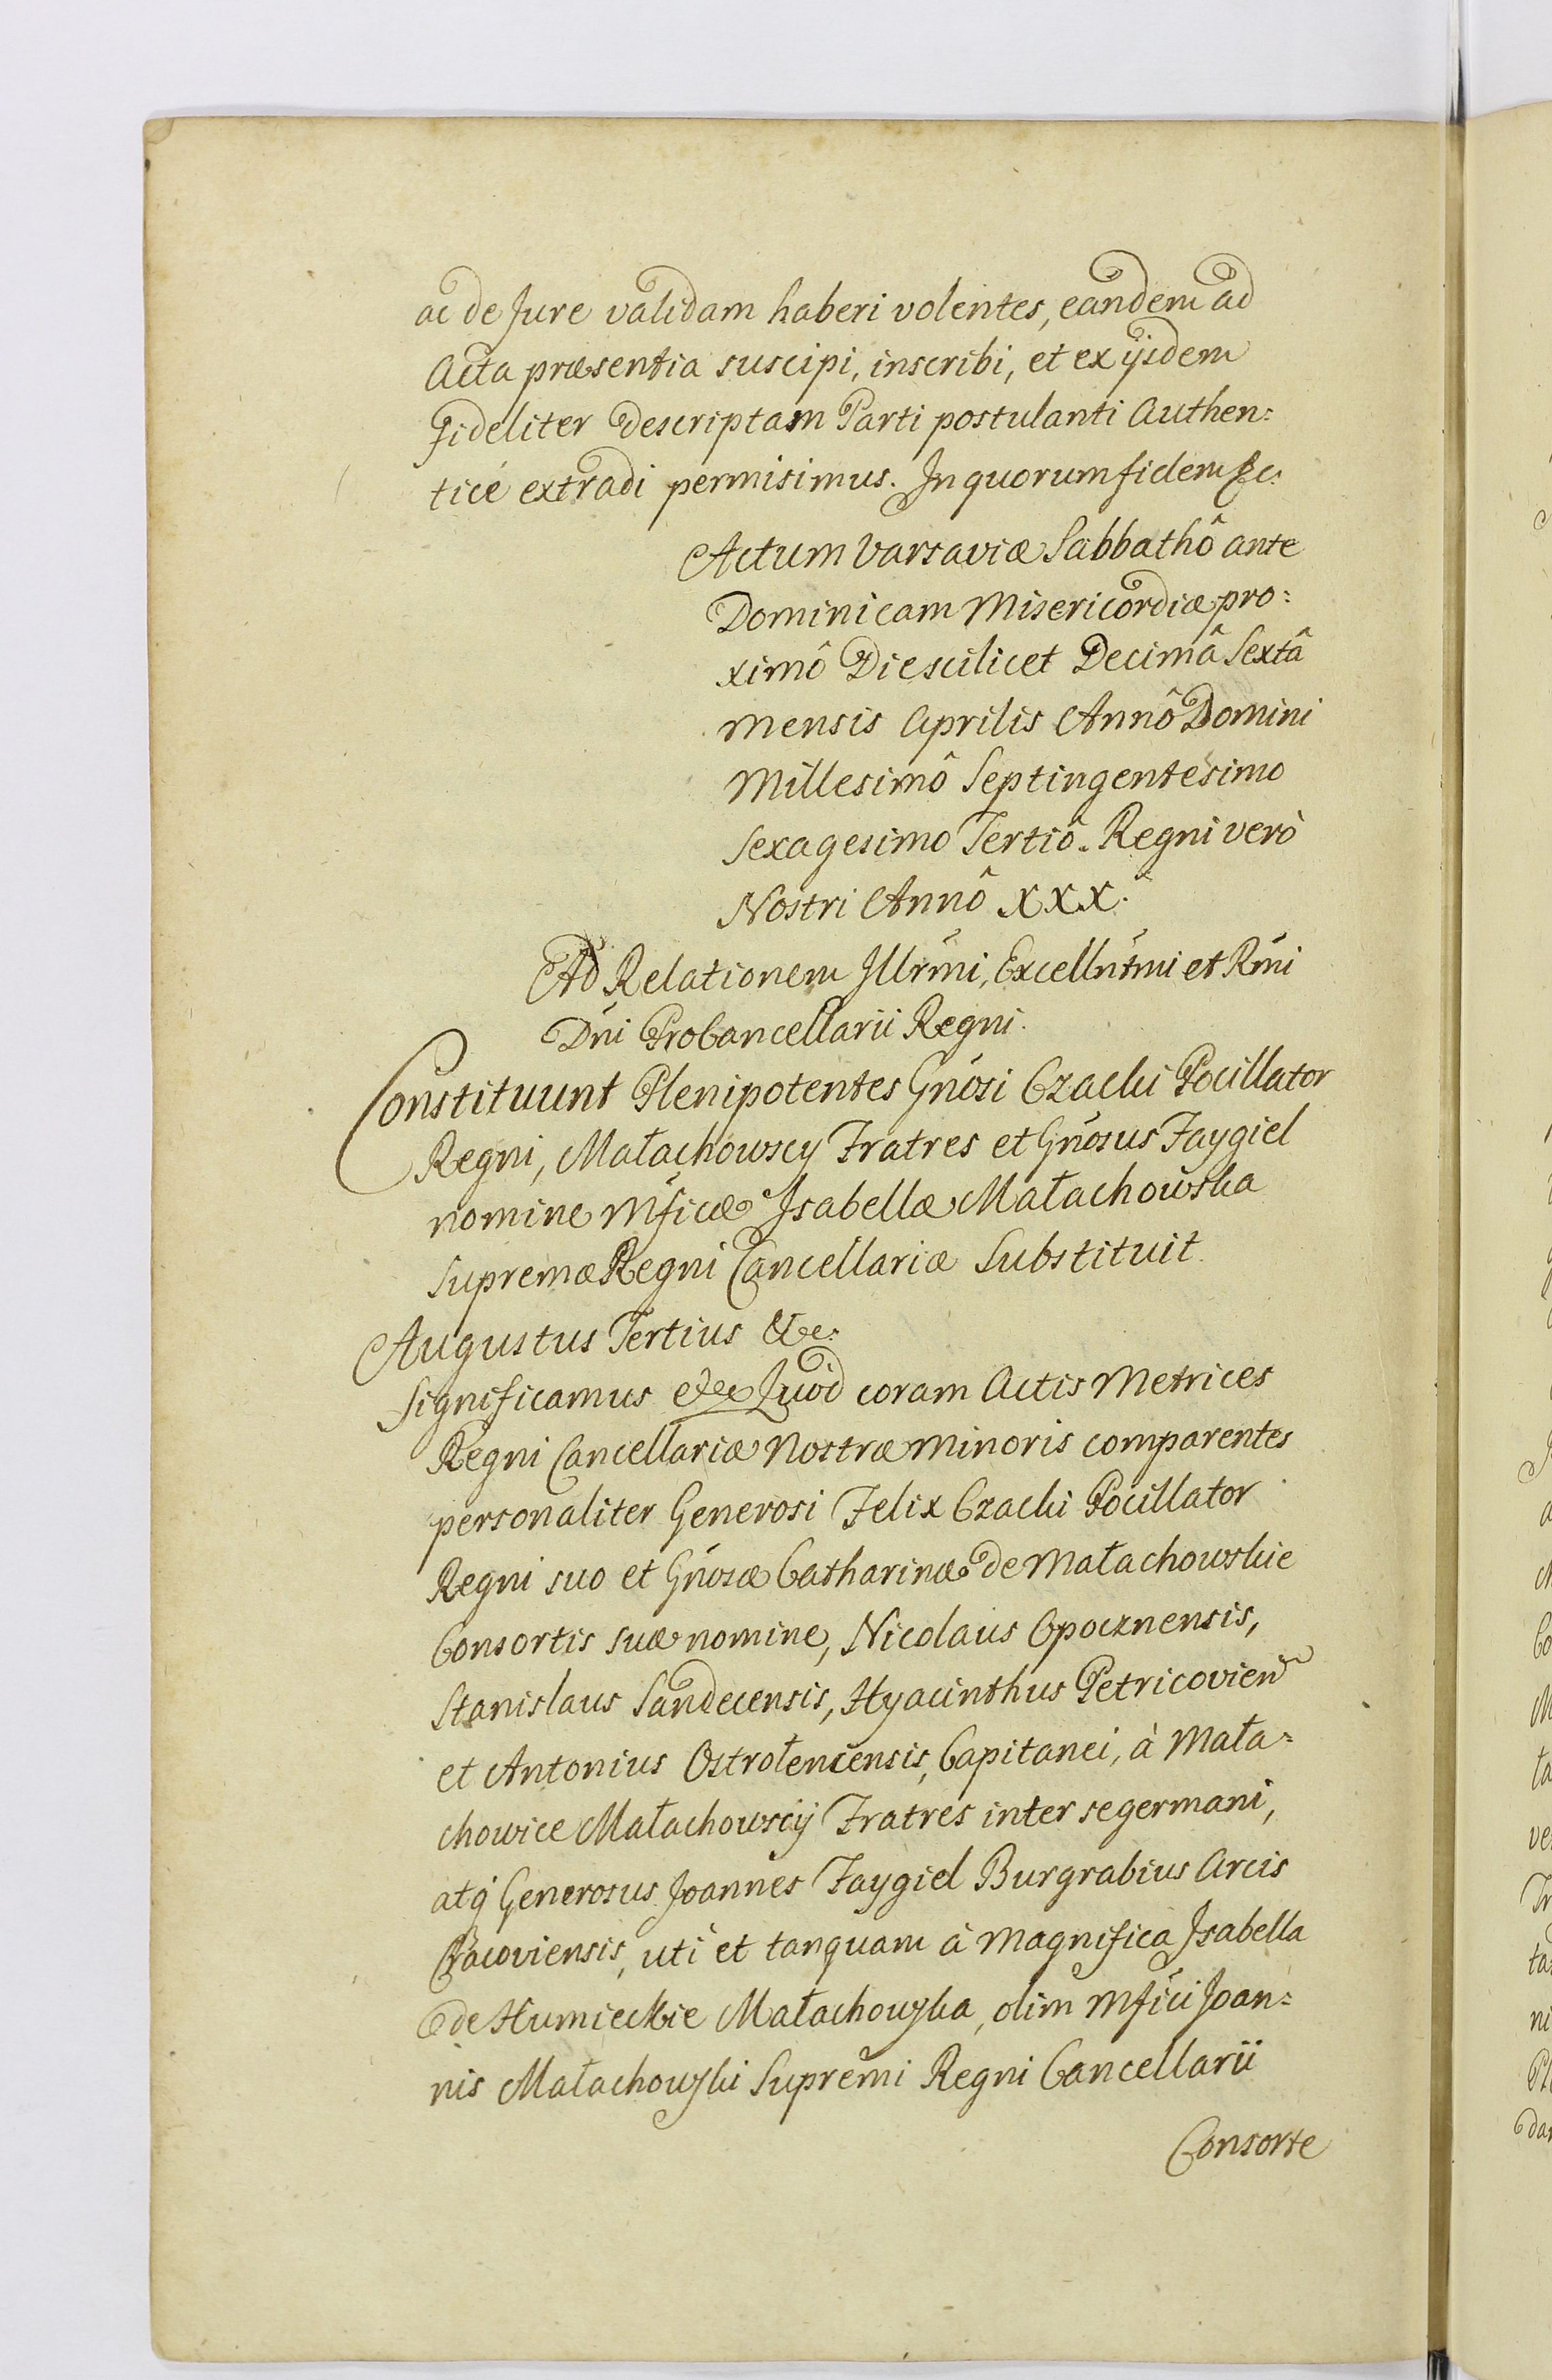 ac de Jure validam haberi volentes, eandem ad
Acta præsentia suscipi, inscribi, et ex ijsdem
fideliter descriptam Parti postulanti Authen=
ticé extradi permisimus. In quorum fidem &c.
Actum Varsaviæ Sabbathô ante
Dominicam Misericordiæ pro=
ximô Die scilicet Decimâ Sextâ
Mensis Aprilis Annô Domini
Millesimô Septingentesimo
Sexagesimo Tertiô. Regni verò
Nostri Annô XXX.
Ad Relationem Illrmi, Excellntmi et Rmi
Dni ProCancellarii Regni.
Constituunt Plenipotentes Gnosi Czacki Pocillator
Regni, Małachowscy Fratres et Gnosus Faygiel
nomine Mficæ Isabellæ Małachowska
Supremæ Regni Cancellariæ Substituit
Augustus Tertius &c.
Significamus &c Quod coram Actis Metrices
Regni Cancellariæ Nostræ Minoris comparentes
personaliter Generosi Felix Czacki Pocillator
Regni suo et Gnosæ Catharinæ de Małachowskie
Consortis suæ nomine, Nicolaus Opocznensis,
Stanislaus Sandecensis, Hyacinthus Petricovien
et Antonius Ostrołencensis, Capitanei, à Mała=
chowice Małachowscij Fratres inter se germani,
atq Generosus Joannes Faygiel Burgrabius Arcis
Cracoviensis, uti et tanquam à Magnifica Isabella
de Humieckie Małachowska, olim Mfici Joan=
nis Małachowski Supremi Regni Cancellarii
Consorte